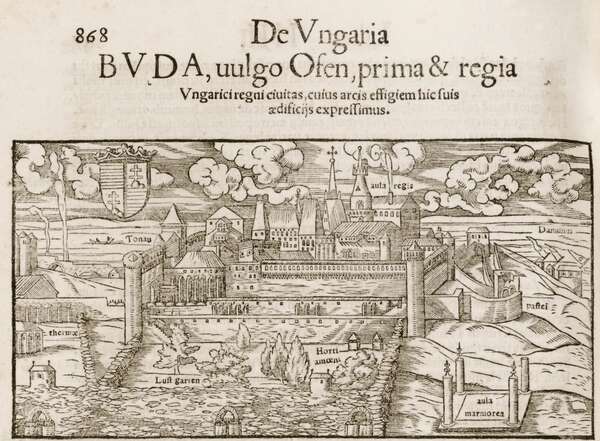 868
De Vngaria
BVDA, uulgo Ofen, prima & regia
Vngarici regni ciuitas, cuius arcis effigiem hic suis
ædificijs expressimus.
aula regia
Tonau
Danubius
thermæ
pastei
Lust garten
Horti
amœni
aula
marmorea